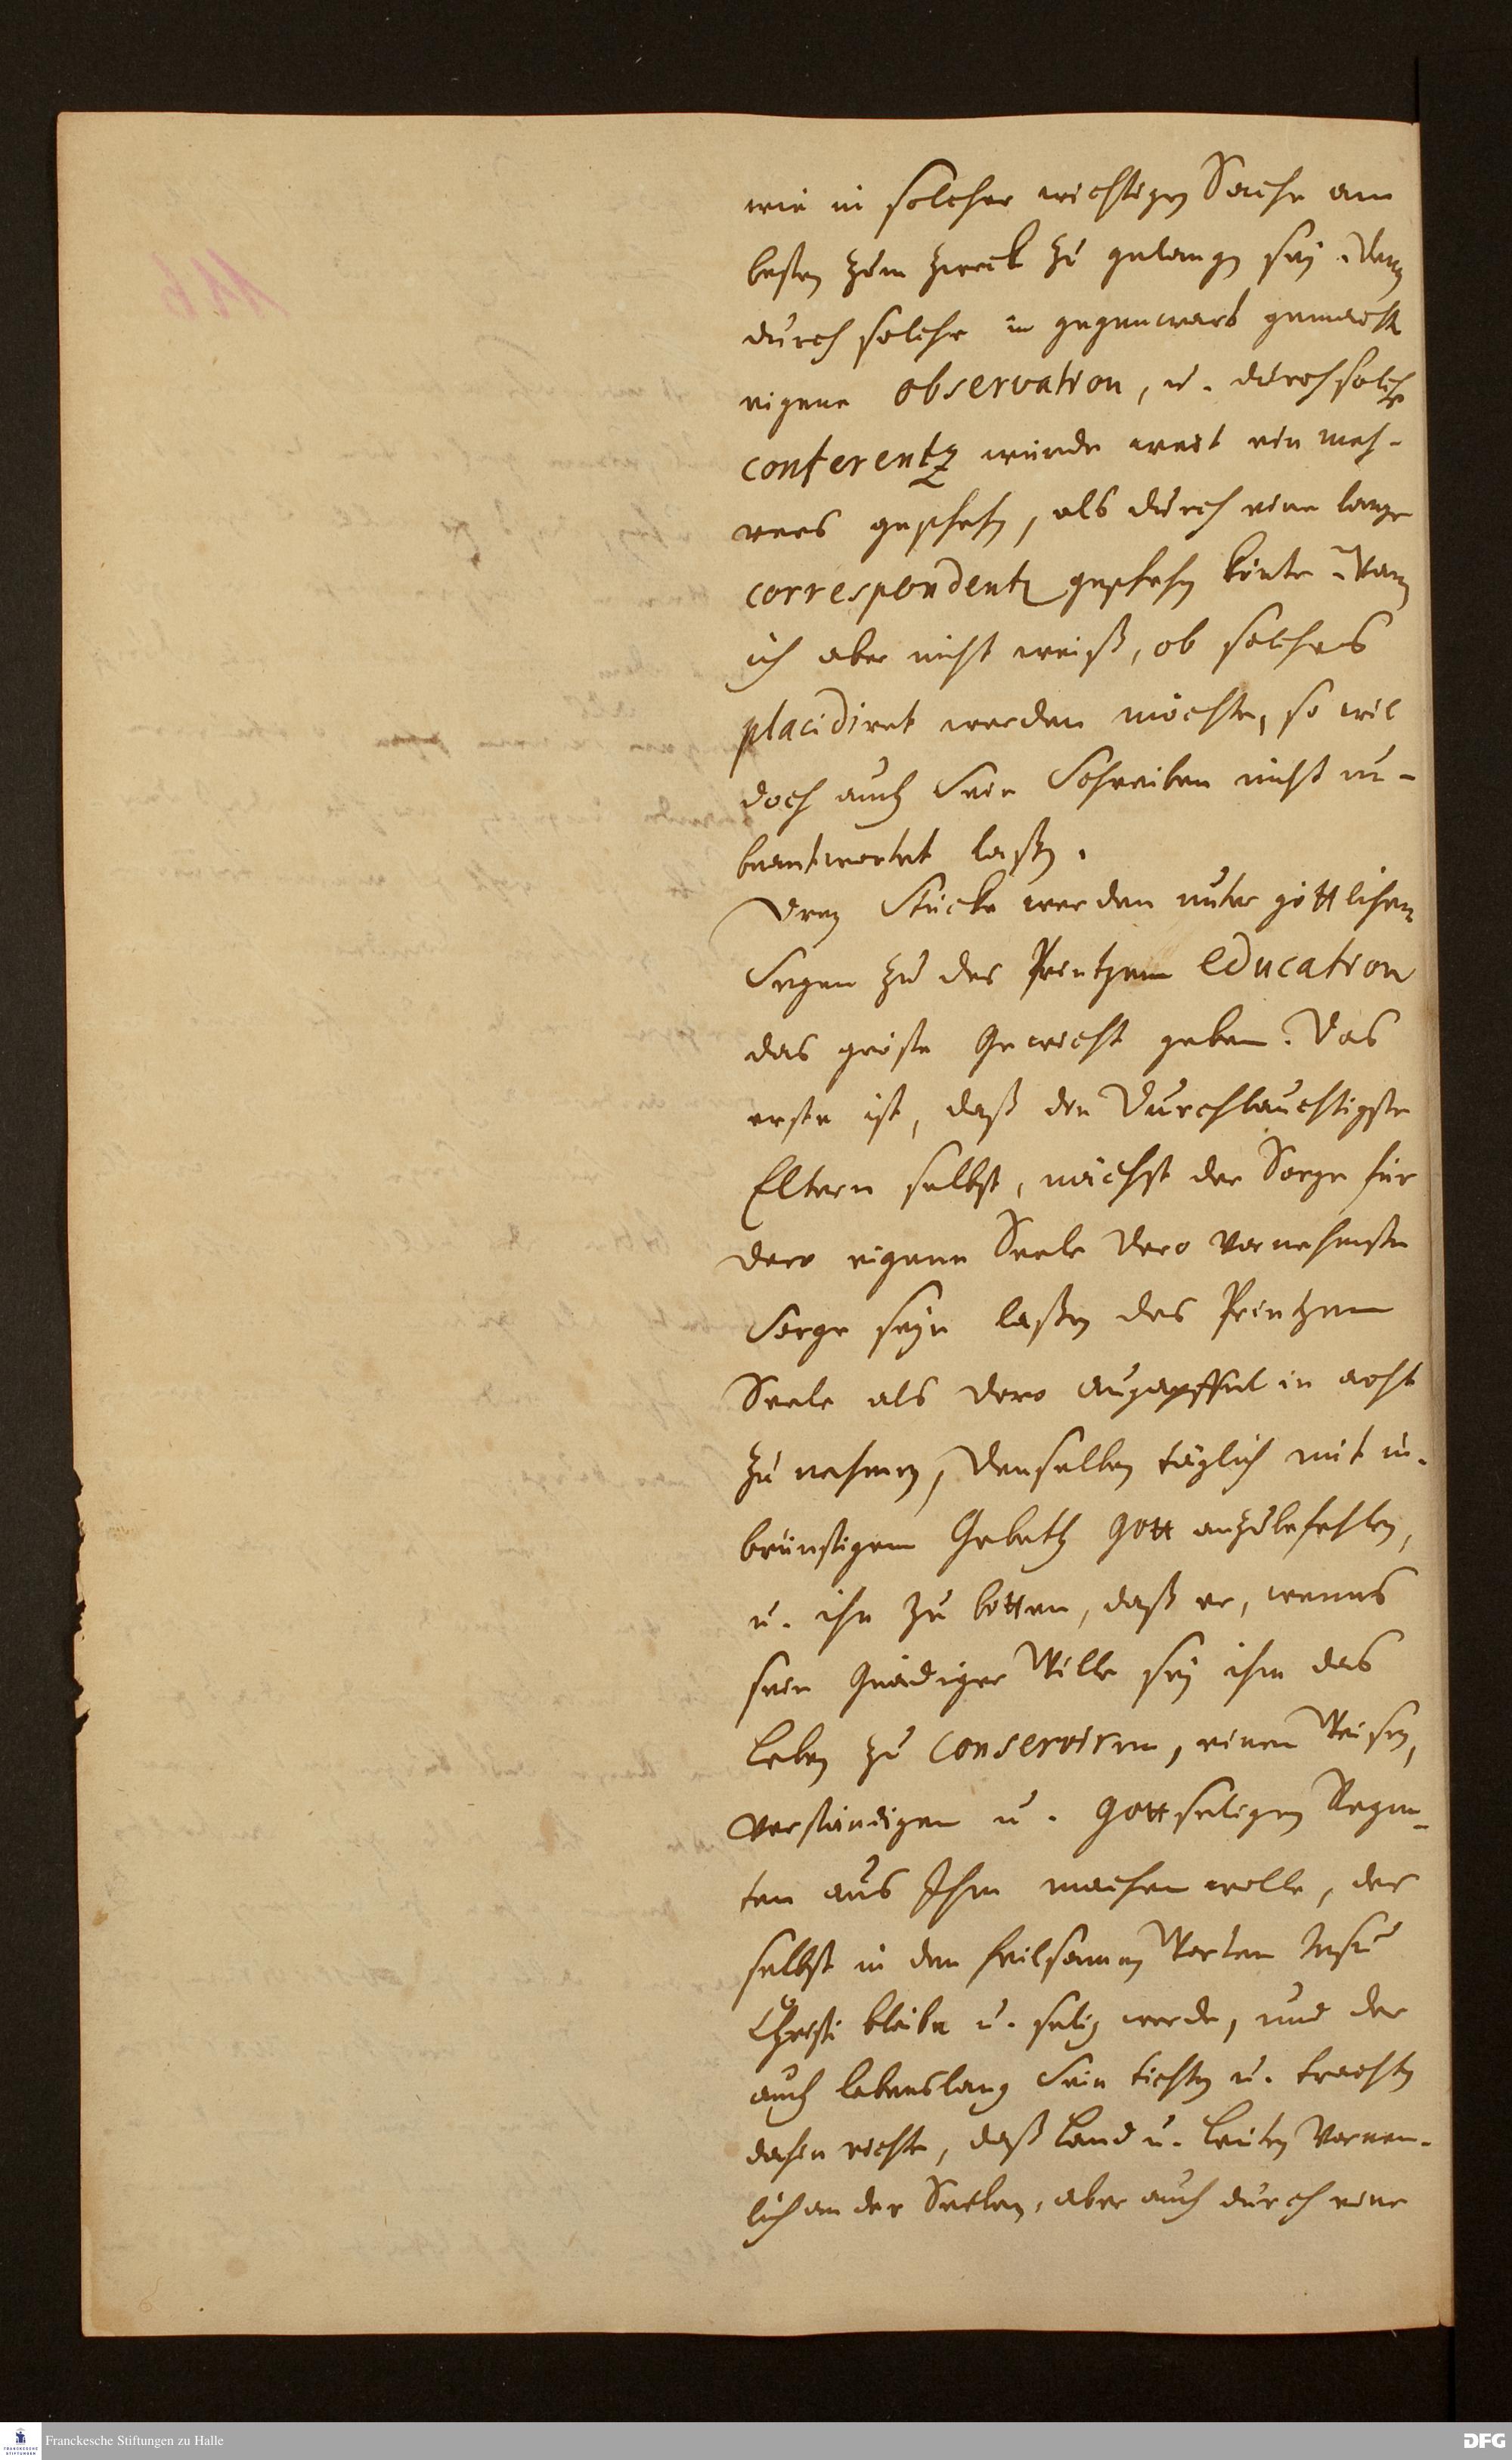 wie in solcher wichtigen Sache am
besten zum zweck zu gelangen sey. Denn
durch solche in gegenwart gemachte
eigene observation, u. durch solche
conferentz würde weit ein meh-
rers geschehen, als durch eine lange
correspondentz geschehen könte. Wann
ich aber nicht weiß, ob solches
placidiret werden möchte, so wil
doch auch Sein Schreiben nicht un-
beantwortet laßen.
Drey Stücke werden unter göttlichen
Segen zu des Printzen education
das gröste Gewicht geben. Das
erste ist, daß die Durchlauchtigste
Eltern selbst, nächst der Sorge für
dero eigene Seele dero vornehmste
Sorge seyn laßen des Printzen
Seele als dero augapffel in acht
zu nehmen, denselben täglich mit in-
brünstigem Gebeth Gott anzubefehlen,
u. ihn zu bitten, daß er, wenns
sein Gnädiger Wille sey ihm das
Leben zu conserviren, einen Weisen,
verständigen u. Gottseligen Regen-
ten aus Ihm machen wolle, der
selbst in den heilsamen Worten Jesu
Christi bleibe u. selig werde, und der
auch lebenslang Sein tichten u. trachten
dahin richte, daß Land u. Leuten vornem-
lich an der Seelen, aber auch durch eine
Franckesche Stiftungen zu Halle
DFG